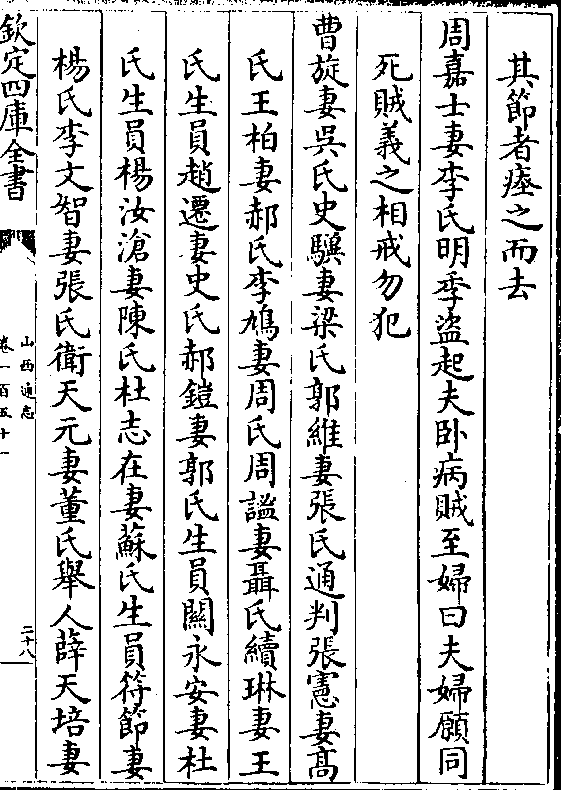 其節者瘞之而去
周嘉士妻李氏明季盜起夫卧病賊至婦曰夫婦願同
死賊義之相戒勿犯
曹旋妻吳氏史驥妻梁氏郭維妻張氏通判張憲妻高
氏王柏妻郝氏李鳩妻周氏周謐妻聶氏續琳妻王
氏生員趙遷妻史氏郝鎧妻郭氏生員關永安妻杜
氏生員楊汝滄妻陳氏杜志在妻蘇氏生員符節妻
楊氏李文智妻張氏衛天元妻董氏舉人薛天培妻
欽定四庫全書
山西通志
卷一百五十一
二十八